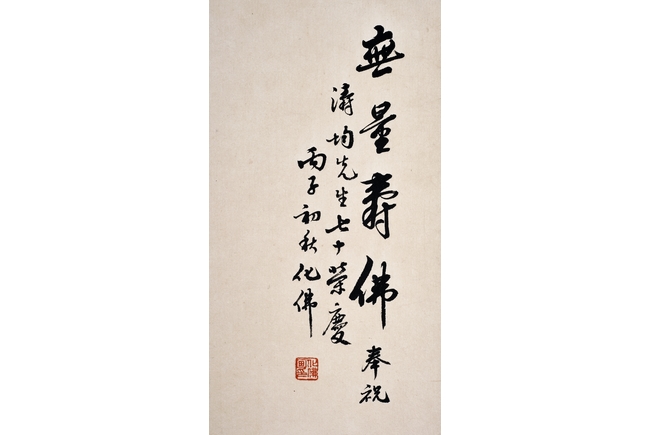 無量壽佛奉祝
濤均先生七十榮慶
丙子初秋化佛